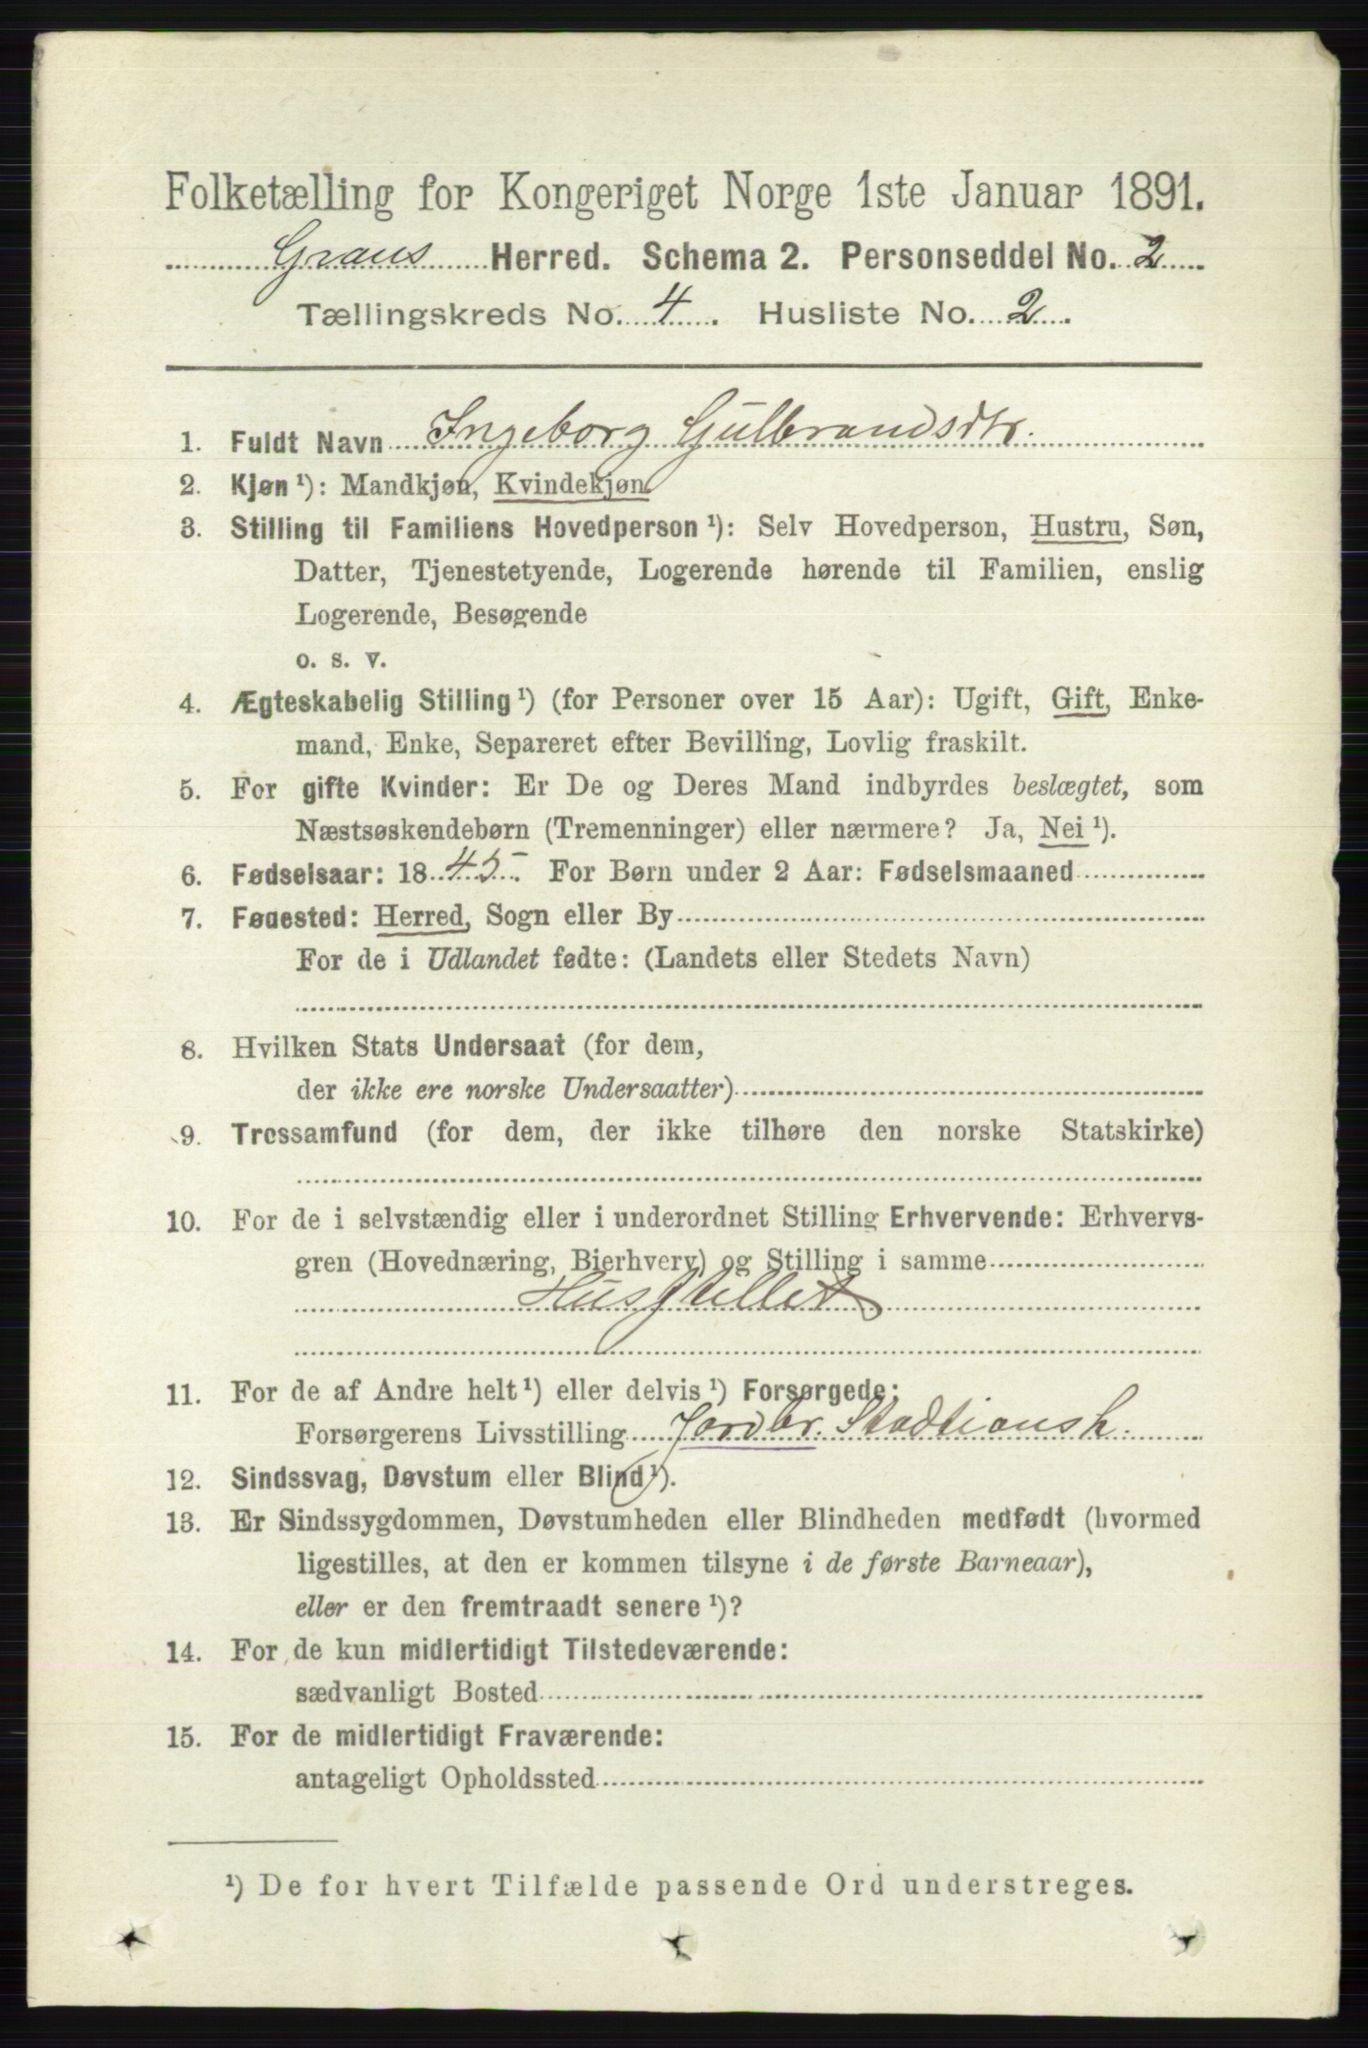 Folketælling for Kongeriget Norge 1ste Januar 1891.
Grans Herred. Schema 2. Personseddel No. 2
Tællingskreds No. 4. Husliste No. 2.
1. Fuldt Navn Ingeborg Gulbrandsdtr.
2. Kjøn ¹): Mandkjøn, Kvindekjøn.
3. Stilling til Familiens Hovedperson ¹): Selv Hovedperson, Hustru, Søn,
Datter, Tjenestetyende, Logerende hørende til Familien, enslig
Logerende, Besøgende
o. s. v.
4. Ægteskabelig Stilling ¹) (for Personer over 15 Aar): Ugift, Gift, Enke-
mand, Enke, Separeret efter Bevilling, Lovlig fraskilt.
5. For gifte Kvinder: Er De og Deres Mand indbyrdes beslægtet, som
Næstsøskendebørn (Tremenninger) eller nærmere? Ja, Nei ¹).
6. Fødselsaar: 1845. For Børn under 2 Aar: Fødselsmaaned
7. Fødested: Herred, Sogn eller By
For de i Udlandet fødte: (Landets eller Stedets Navn)
8. Hvilken Stats Undersaat (for dem,
der ikke ere norske Undersaatter)
9. Trossamfund (for dem, der ikke tilhøre den norske Statskirke)
10. For de i selvstændig eller i underordnet Stilling Erhvervende: Erhvervs-
gren (Hovednæring, Bierhverv) og Stilling i samme
Husstellet
11. For de af Andre helt ¹) eller delvis ¹) Forsørgede:
Forsørgerens Livsstilling Jordbr. Stadtionsh.
12. Sindssvag, Døvstum eller Blind ¹).
13. Er Sindssygdommen, Døvstumheden eller Blindheden medfødt (hvormed
ligestilles, at den er kommen tilsyne i de første Barneaar),
eller er den fremtraadt senere ¹)?
14. For de kun midlertidigt Tilstedeværende:
sædvanligt Bosted
15. For de midlertidigt Fraværende:
antageligt Opholdssted
¹) De for hvert Tilfælde passende Ord understreges.